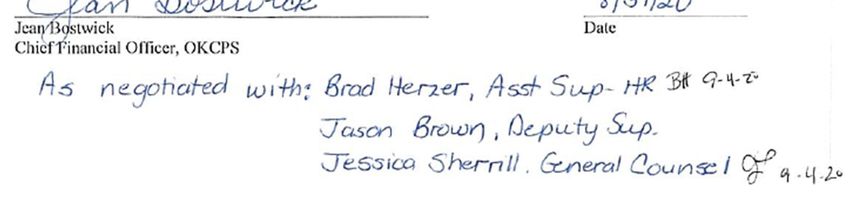 Jean Bostwick 8/31/20
Jean Bostwick Date
Chief Financial Officer, OKCPS
As negotiated with: Brad Herzer, Asst Sup- HR BH 9-4-20
Jason Brown, Deputy Sup.
Jessica Sherrill. General Counsel 9.4.20